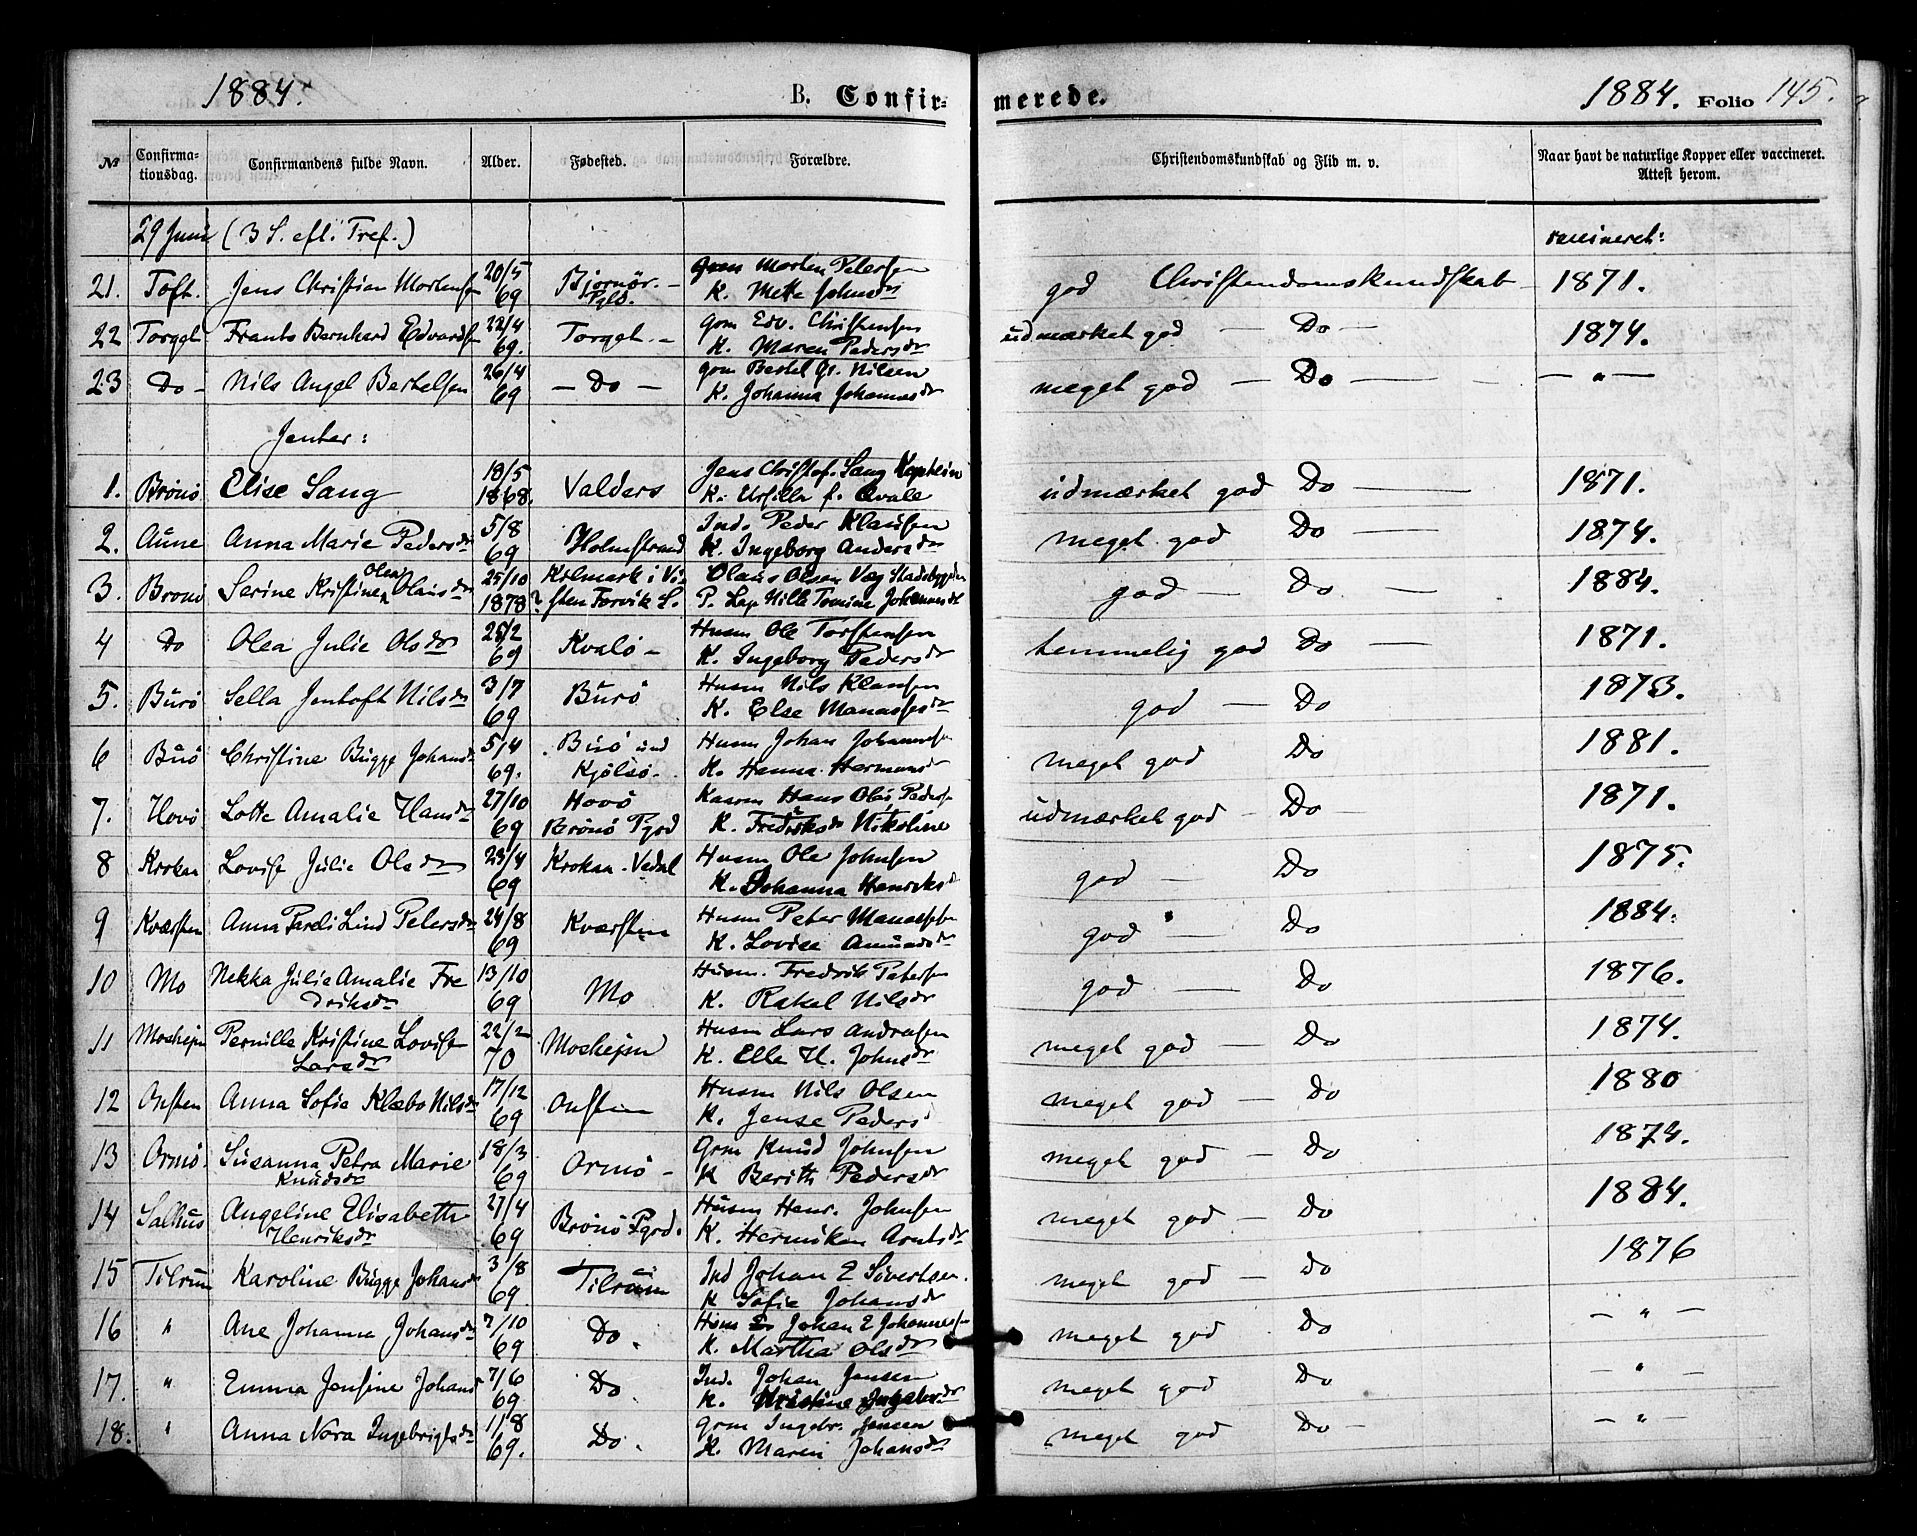 1884. B. Confirmerede. 1884. Folio 145.
№ Confirmationsdag. Confirmandens fulde Navn. Alder. Fødested. Forældre. Christendomskundskab og Flid m. v. Naar havt de naturlige Kopper eller vaccineret. Attest herom.
29 Juni (3 S. eft. Tref.) vaccineret:
21. Toft. Jens Christian Mortensen 20/5 69 Bjørnør Pgld. Grm Morten Petersen K. Mette Johnsdr god Christendomskundskab 1871.
22 Torget Frants Bernhard Edvards 22/4 69. Torget. – Grm Edv. Christensen K. Maren Pedersdr udmærket god – Do – 1874.
23 Do – Nils Angel Bertelsen 26/4 69 – Do – Grm Bertel Nilsen K. Johanna Johannesdr meget god – Do – – " –
Jenter:
1. Brønø Elise Sang 18/5 1868. Valders Jens Christof. Sang K. f. Qvale udmærket god Do – 1871.
2. Aune Anna Marie Pedersdr 5/8 69 Holmstrand Ind. Peder Klausen K. Ingeborg Andersdr meget god Do – 1874.
3. Brønø Serine Kristine Olea Olausdr 25/10 1878? i Vi sten Forvik S. Olaus Olsen P. Lap Nille Tomine god – Do – 1884.
4 Do Olea Julie Olsdr 25/2 69 Kvalø – Husm Ole Torstensen K. Ingeborg Pedersdr temmelig god Do – 1871.
5. Burø Sella Jentoft Nilsdr 3/7 69 Burø Husm Nils Klausen K. Else Manassesdr god – Do 1873.
6 Buø Christine Bugge Johansdr 5/4 69. Buø und Kjølsø. Husm Johan Johannesen K. Hanna Hermansdr meget god Do 1881.
7. Hovø Lotte Amalie Hansdr 27/10 69 Hovø Brønø Pgrd Hans Olai Peders K. Fredriksdr Nikoline udmærket god – Do – 1871.
8 Krokan Lovise Julie Olsdr 23/4 69 Krokan. Vedal Husm Ole Johnsen K. Johanna Henriksdr god – Do 1875.
9 Kværsten Anna Pareli Lind Petersdr 24/8 69 Kværsten Husm Peter Manasses K. Lovise Amundsdr god – Do 1884.
10 Mo Nekka Julie Amalie Fredriksdr 13/10 69 Mo Husm. Fredrik Petersen K. Rakel Nilsdr god – Do 1876.
11 Moshejen Pernille Kristine Lovise Larsdr 22/2 70 Moshejen Husm Lars Andreasen K. Elle H. Johnsdr meget god – Do 1874.
12 Onsten Anna Sofie Klæbo Nilsdr 17/12 69 Onsten Husm Nils Olsen K. Jense Peders meget god – Do 1880
13 Ormø. Susanna Petra Marie Knudsdr 18/3 69 Ormø – Grm Knud Johnsen K Berith Pedersdr meget god – Do 1874.
14 Salhus Angeline Elisabeth Henriksdr 27/4 69 Brønø Pgrd. Husm Henr. Johnsen K. Herniken Arntsdr meget god – Do 1884.
15 Tilrum Karoline Bugge Johansdr 3/8 69. Tilrum Ind Johan E Sivertsen. K Sofie Johansdr meget god – Do 1876
16 " Ane Johanna Johansdr 7/10 69 Do. Husm Johan E Johannes K. Martha Olsdr meget god Do – " –
17. " Emma Jensine Johans 7/6 69. Do Ind. Johan Jensen K. Kristine meget god Do – " –
18. " Anna Nora Ingebrigtsdr 11/8 69. Do. Grm Ingebr. Jensen K. Maren Johansdr meget god Do – – " –